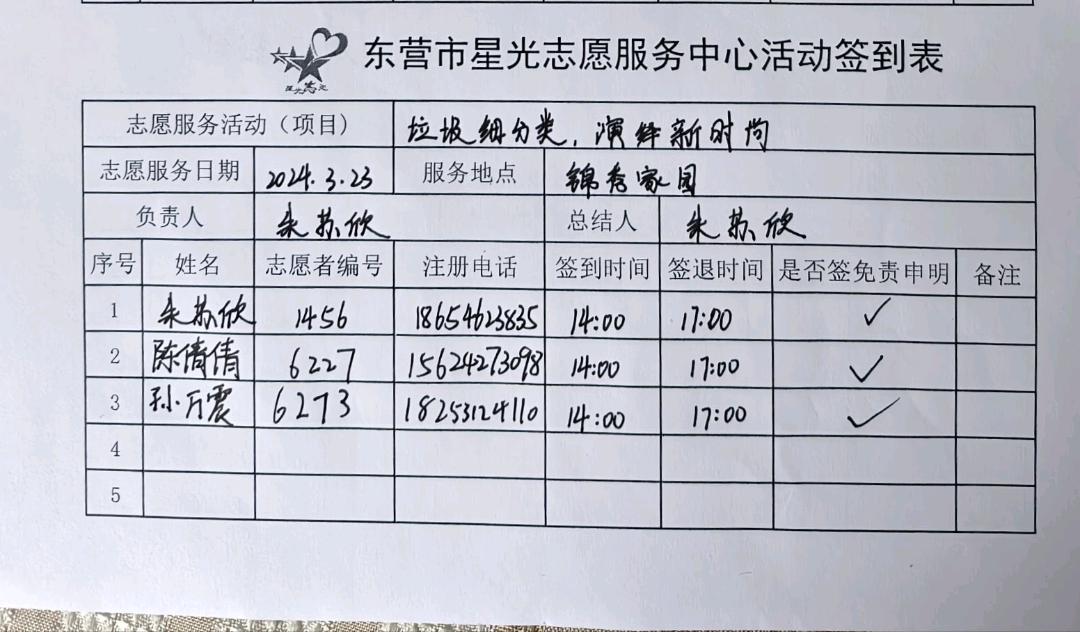 东营市星光志愿服务中心活动签到表
星光志愿
志愿服务活动（项目） 垃圾细分类，演绎新时尚
志愿服务日期 2024.3.23 服务地点 锦秀家园
负责人 朱苏欣 总结人 朱苏欣
序号 姓名 志愿者编号 注册电话 签到时间 签退时间 是否签免责申明 备注
1 朱苏欣 1456 18654623835 14:00 17:00 ✓
2 陈倩倩 6227 15624273098 14:00 17:00 ✓
3 孙万震 6273 18253124110 14:00 17:00 ✓
4
5